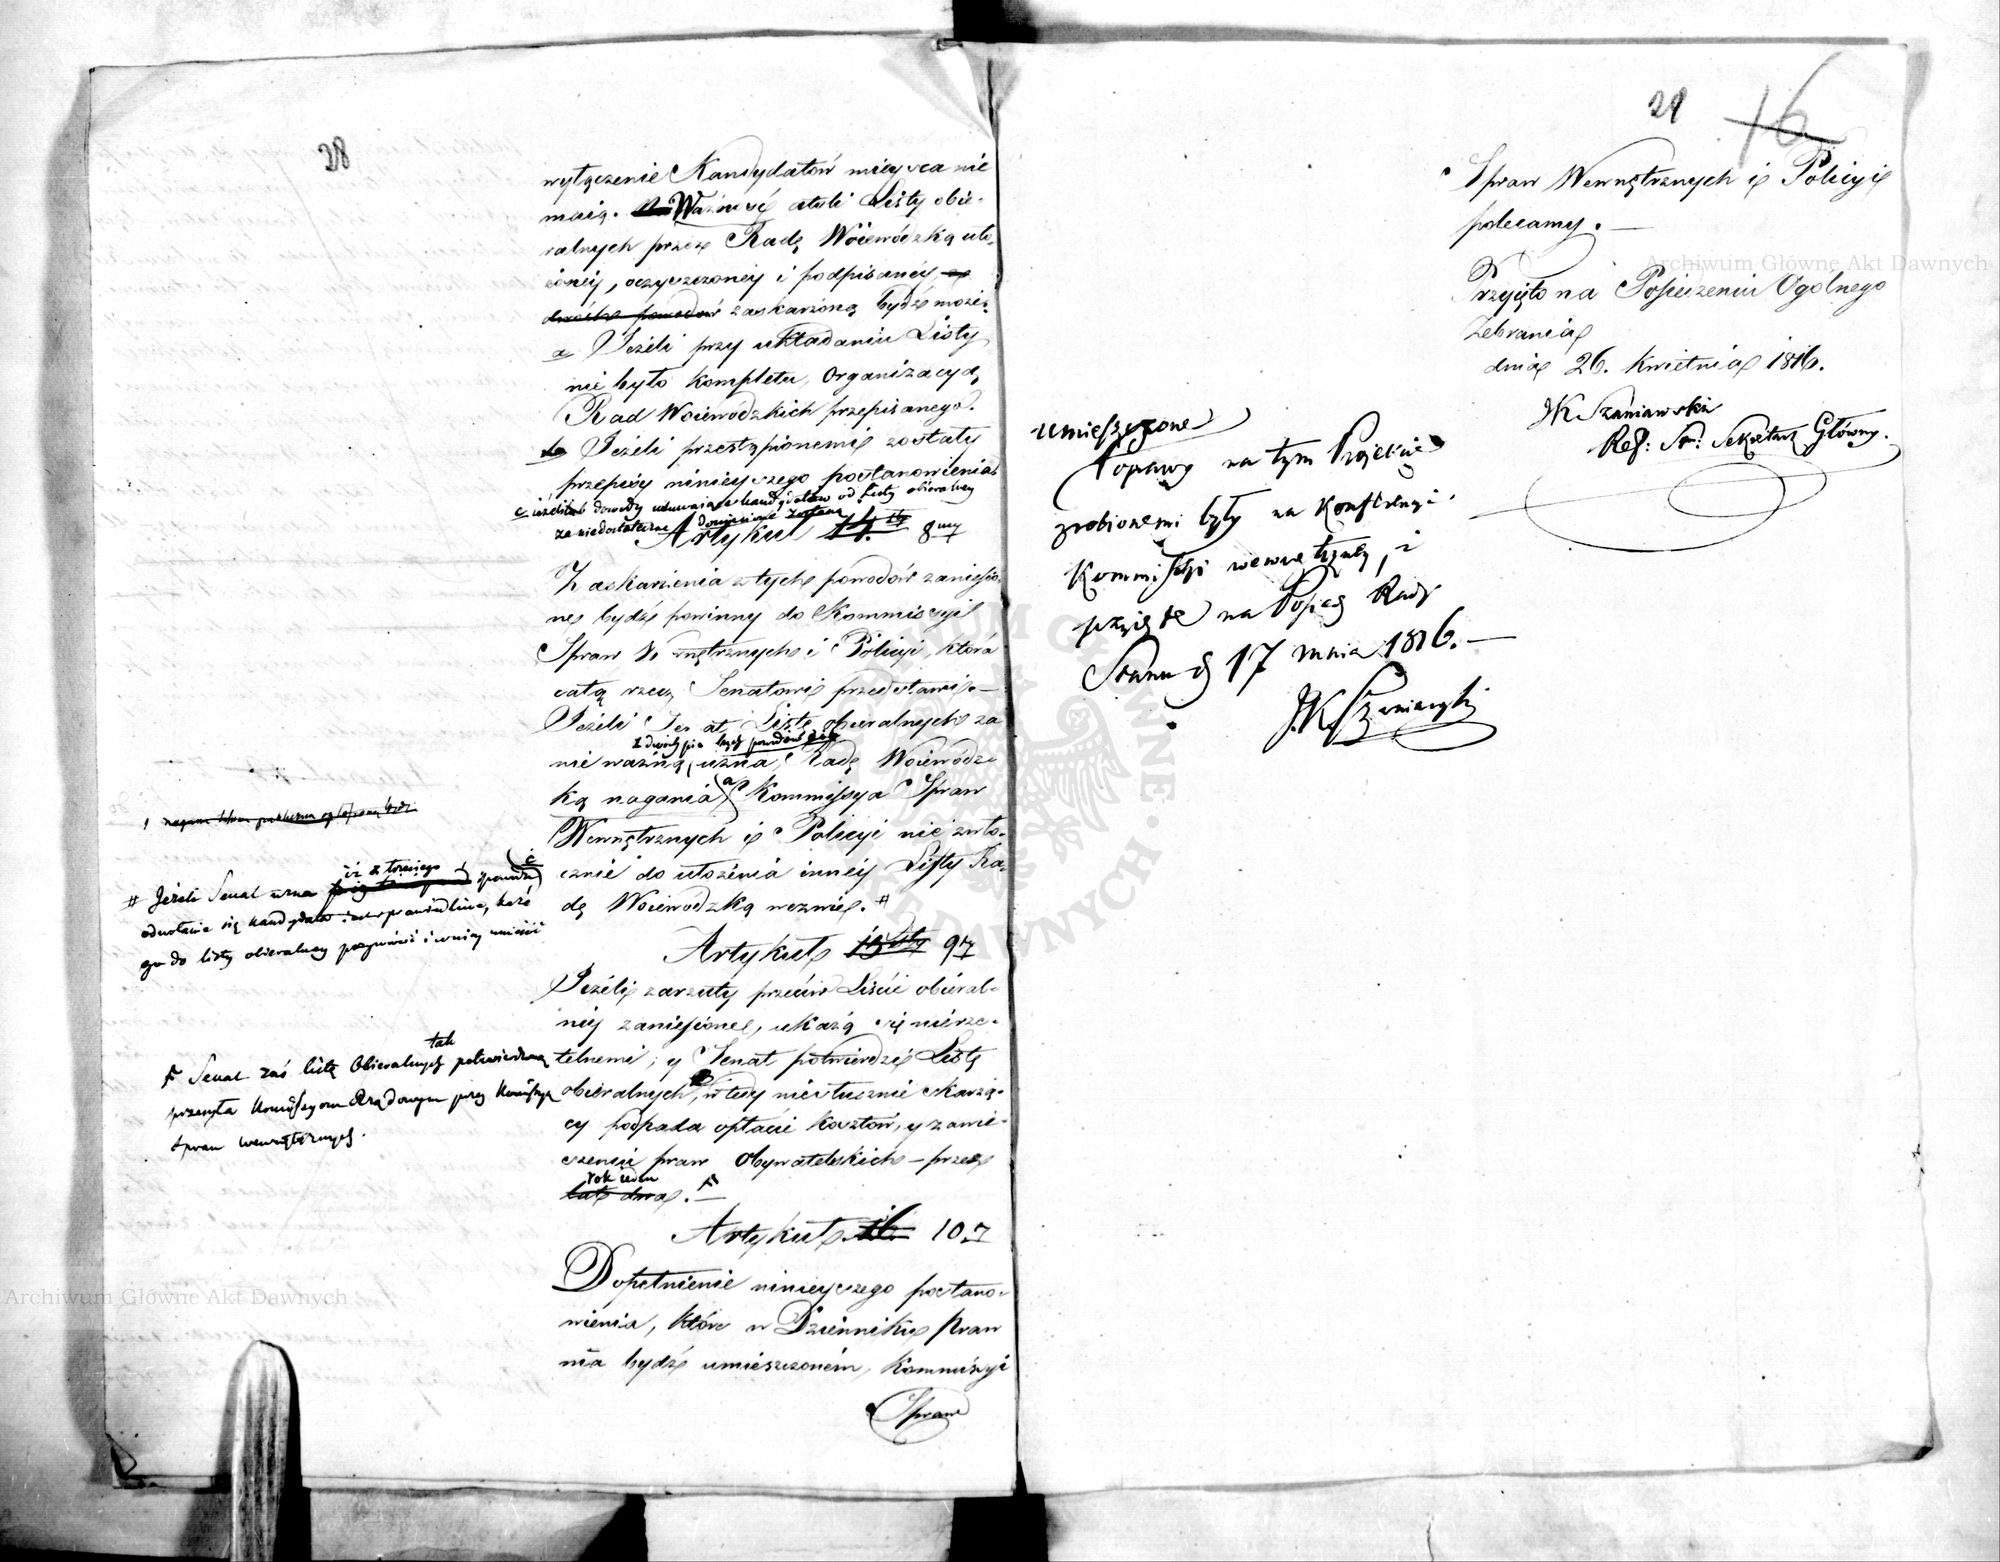 28
wyłączenie Kandydatów mieysca nie
maią. Ważność atoli Listy obie-
ralnych przez Radę Woiewódzką uło-
żoney, oczyszczoney i podpisaney,
dwóch powodów zaskarżoną bydź może.
a Jeżeli przy układaniu Listy
nie było kompletu, Organizacyą
Rad Woiewódzkich przepisanego.
b Jeżeli przestąpionemi zostały
przepisy ninieyszego postanowienia
c ieżeli dowody usuwaiące kandydatów od Listy obieralney
za niedostateczne
Artykuł 14. 8my
Zaskarżenia z tych powodów zaniesio-
ne bydź powinny do Kommissyi
Spraw Wewnętrznych i Policyi, która
całą rzecz Senatowi przedstawi.—
Jeżeli Senat Listę obieralnych za
z dwóch pierwszych powodów
nieważną uzna, Radę Woiewódz-
ką nagania, a Kommissya Spraw
Wewnętrznych i Policyi nie zwło-
cznie do ułożenia inney Listy Ra-
dę Woiewodzką wezwie. #
! 
# Jeżeli Senat uzna iż z trzeciego powodu
odwołanie się kandydata iest sprawiedliwe, każe
go do listy obieralney przywrócić i w niey umieścić
Artykuł 9
Jeżeli zarzuty przeciw Liście obieral-
ney zaniesione, ukażą się nierze-
telnemi; y Senat potwierdzi Listę
obieralnych, wtedy niesłusznie skarżą-
cy podpada opłacie kosztów, y zawie-
szeniu praw Obywatelskich – przez
rok ieden
lat dwa. —
F Senat zaś listę Obieralnych tak potwierdzoną
przesyła Kommissyom Rządowym przez Kommissyę
Spraw Wewnętrznych.
Artykuł 16. 10
Dopełnienie ninieyszego postano-
wienia, które w Dzienniku Praw
ma bydź umieszczonem, Kommissyi
Spraw
29
16
Spraw Wewnętrznych i Policyi
polecamy. —
Przyięto na Posiedzeniu Ogólnego
Zebrania
dnia 26. Kwietnia 1816.
JK Szaniawski
Ref: St: Sekretarz Główny.
umieszczone
Poprawy na tym Projekcie
zrobionemi były na Konferencyi
Kommissyi wewnętrzney, i
przyięte na Posiedz Rady
Stanu d 17 maia 1816. —
JKSzaniawski
Archiwum Główne Akt Dawnych
Archiwum Główne Akt Dawnych